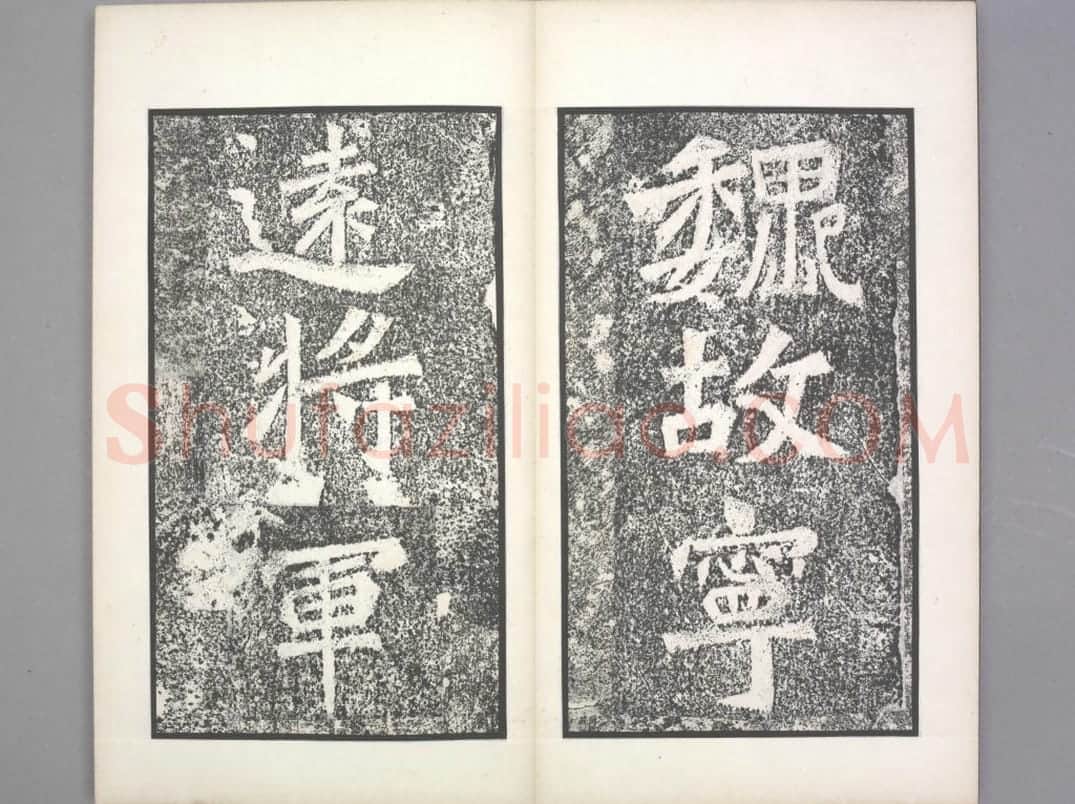 魏故寧
遠將軍
Shufaziliao.COM